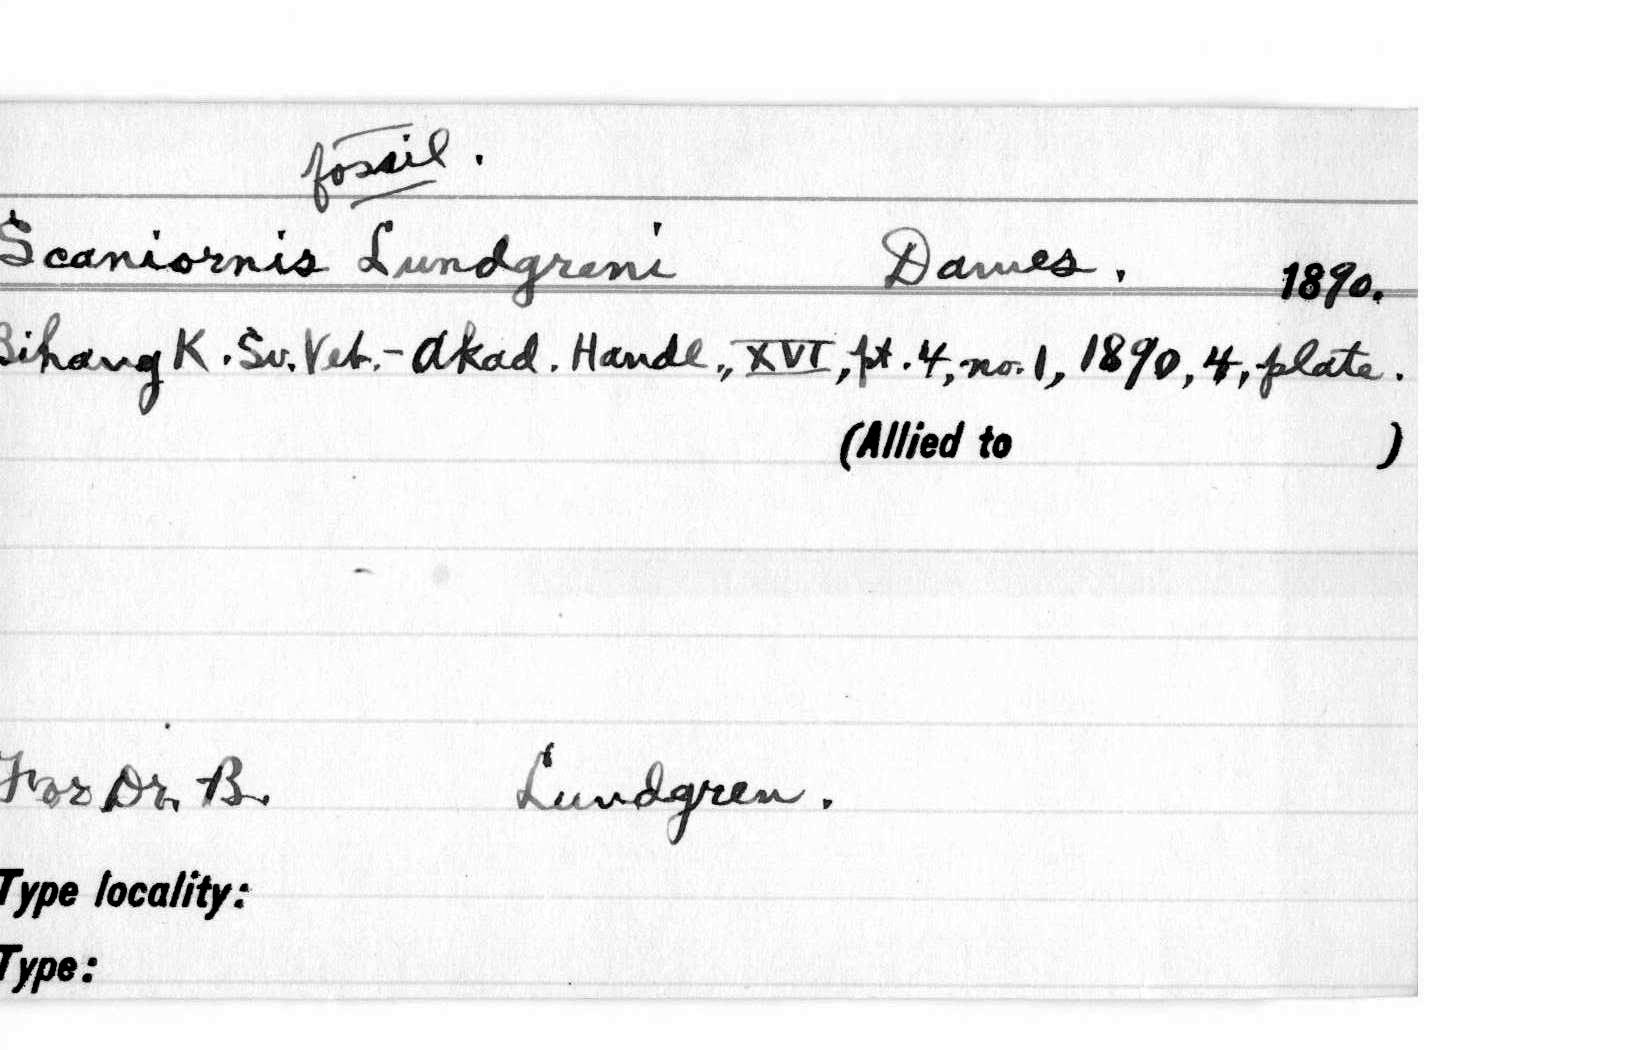 fossil.
Scaniornis Lundgreni Dames. 1890.
Bihang K. Sv. Vet.-Akad. Handl., XVI, pt. 4, no. 1, 1890, 4, plate.
(Allied to )
For Dr. B. Lundgren.
Type locality:
Type: